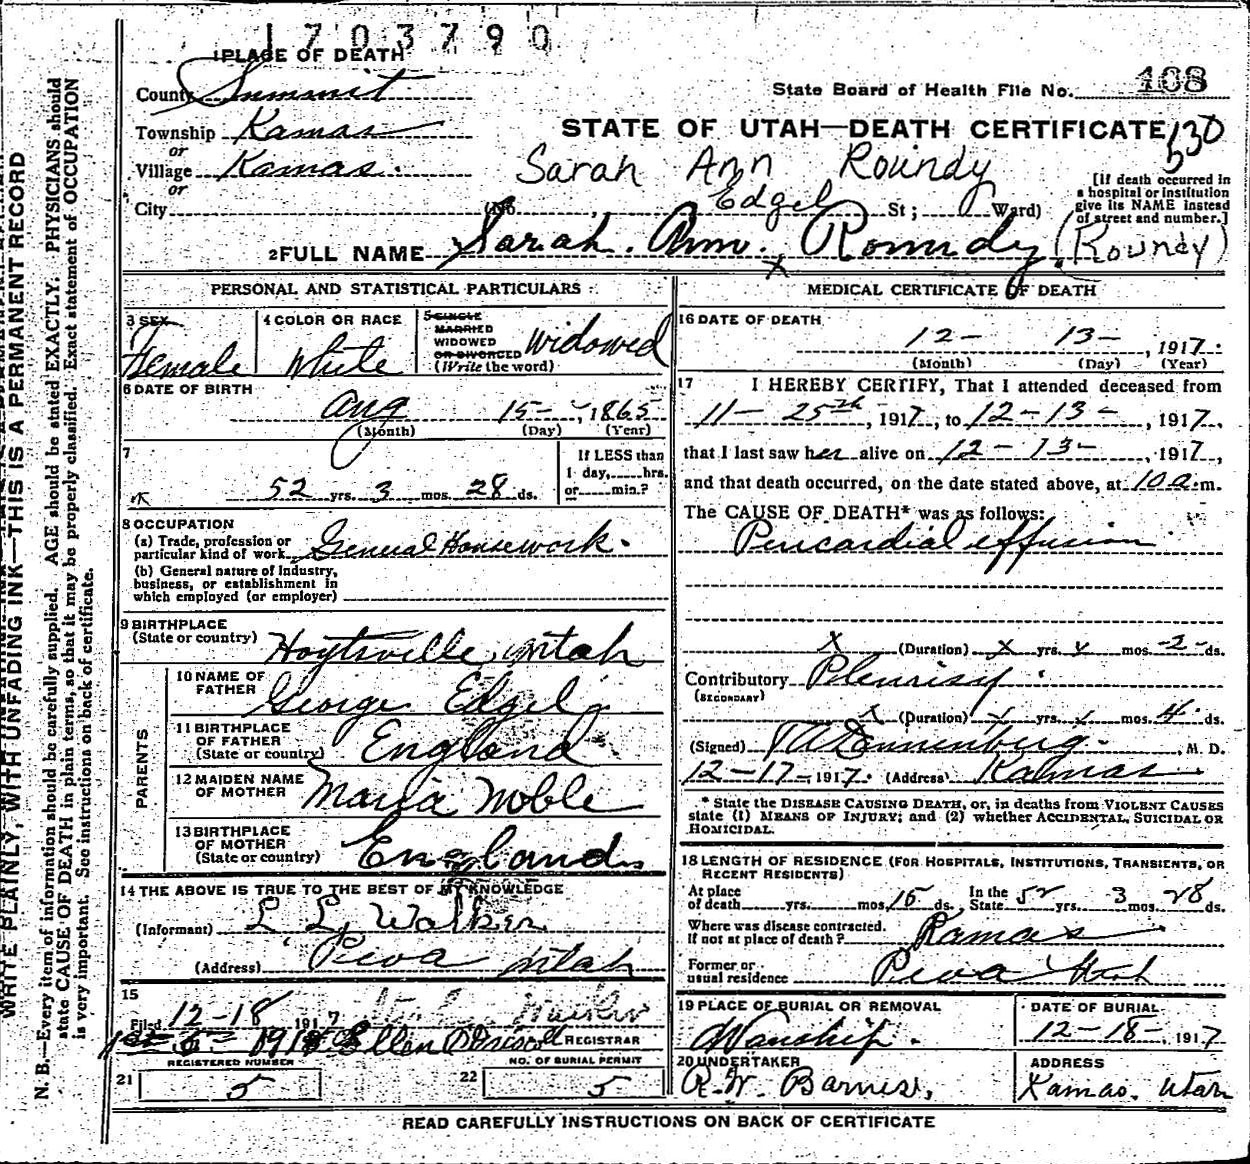 1703790
1 PLACE OF DEATH
County Summit
State Board of Health File No. 108
Township Kamas
STATE OF UTAH—DEATH CERTIFICATE 530
or
Village Kamas.
Sarah Ann Roundy
or
Edgel
[If death occurred in
a hospital or institution
give its NAME instead
of street and number.]
City (No. , St ; Ward)
2 FULL NAME Sarah. Ann. Roundy. (Roundy)
PERSONAL AND STATISTICAL PARTICULARS
3 SEX
Female
4 COLOR OR RACE
White
5 SINGLE
MARRIED
WIDOWED
OR DIVORCED
(Write the word)
Widowed
6 DATE OF BIRTH
Aug 15- , 1865
(Month) (Day) (Year)
7
52 yrs. 3 mos. 28 ds.
If LESS than
1 day, hrs.
or min.?
8 OCCUPATION
(a) Trade, profession or
particular kind of work General Housework.
(b) General nature of Industry,
business, or establishment in
which employed (or employer)
9 BIRTHPLACE
(State or country) Hoytsville, Utah
PARENTS
10 NAME OF
FATHER George Edgel
11 BIRTHPLACE
OF FATHER
(State or country) England
12 MAIDEN NAME
OF MOTHER Maria Noble
13 BIRTHPLACE
OF MOTHER
(State or country) England
14 THE ABOVE IS TRUE TO THE BEST OF MY KNOWLEDGE
(Informant) L. L. Walker
(Address) Peoa Utah
15
Filed 12-18 1917
1918 Ellen O Driscoll REGISTRAR
REGISTERED NUMBER
NO. OF BURIAL PERMIT
21 5
22 5
MEDICAL CERTIFICATE OF DEATH
16 DATE OF DEATH
12- 13- , 1917.
(Month) (Day) (Year)
17 I HEREBY CERTIFY, That I attended deceased from
11- 25th , 1917, to 12-13- , 1917.,
that I last saw her alive on 12-13- , 1917,
and that death occurred, on the date stated above, at 10 a.m.
The CAUSE OF DEATH* was as follows:
Pericardial effusion
x (Duration) x yrs. x mos. -2- ds.
Contributory Pleurisy.
(SECONDARY)
x (Duration) yrs. mos. 4. ds.
(Signed) Dannenburg. , M. D.
12-17-, 1917. (Address) Kamas
* State the DISEASE CAUSING DEATH, or, in deaths from VIOLENT CAUSES
state (1) MEANS OF INJURY; and (2) whether ACCIDENTAL, SUICIDAL OR
HOMICIDAL.
18 LENGTH OF RESIDENCE (FOR HOSPITALS, INSTITUTIONS, TRANSIENTS, OR
RECENT RESIDENTS)
At place
of death yrs. mos. 15 ds.
In the
State 52 yrs. 3 mos. 28 ds.
Where was disease contracted.
If not at place of death? Kamas
Former or
usual residence Peoa Utah
19 PLACE OF BURIAL OR REMOVAL
Wanship.
DATE OF BURIAL
12-18-, 1917
20 UNDERTAKER
R. W. Barnes,
ADDRESS
Kamas. Utah
READ CAREFULLY INSTRUCTIONS ON BACK OF CERTIFICATE
WRITE PLAINLY, WITH UNFADING INK—THIS IS A PERMANENT RECORD
N. B.—Every item of information should be carefully supplied. AGE should be stated EXACTLY. PHYSICIANS should
state CAUSE OF DEATH in plain terms, so that it may be properly classified. Exact statement of OCCUPATION
is very important. See instructions on back of certificate.